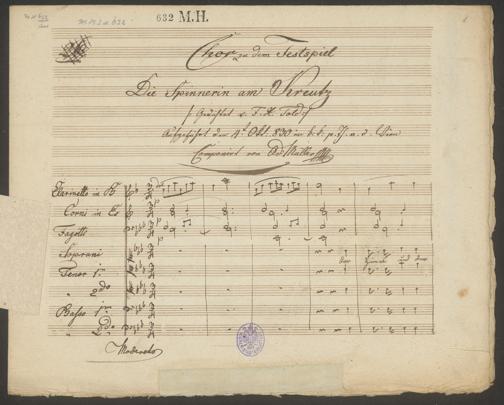 632 M.H.
Chor zu dem Festspiel
Die Spinnerin am Kreutz
Gedichtet v. F. X. Told
Aufgeführt den 4t Okt. 830 im k. k. p. Th. a. d. Wien
Componirt von Ad. Müller
Clarinetto in B
Corni in Es
Fagotti
Soprani
Tenor 1mo
" 2do
Basso 1mo
" 2do
Moderato